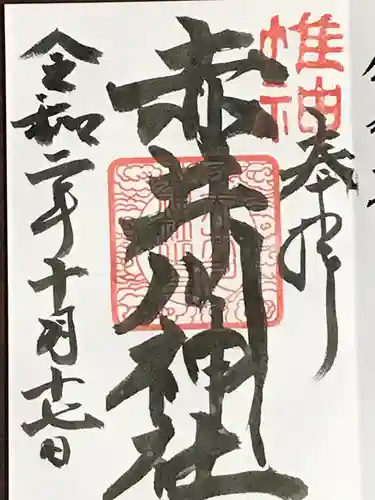 奉拝
惟神
赤井川神社
令和二年十月十七日